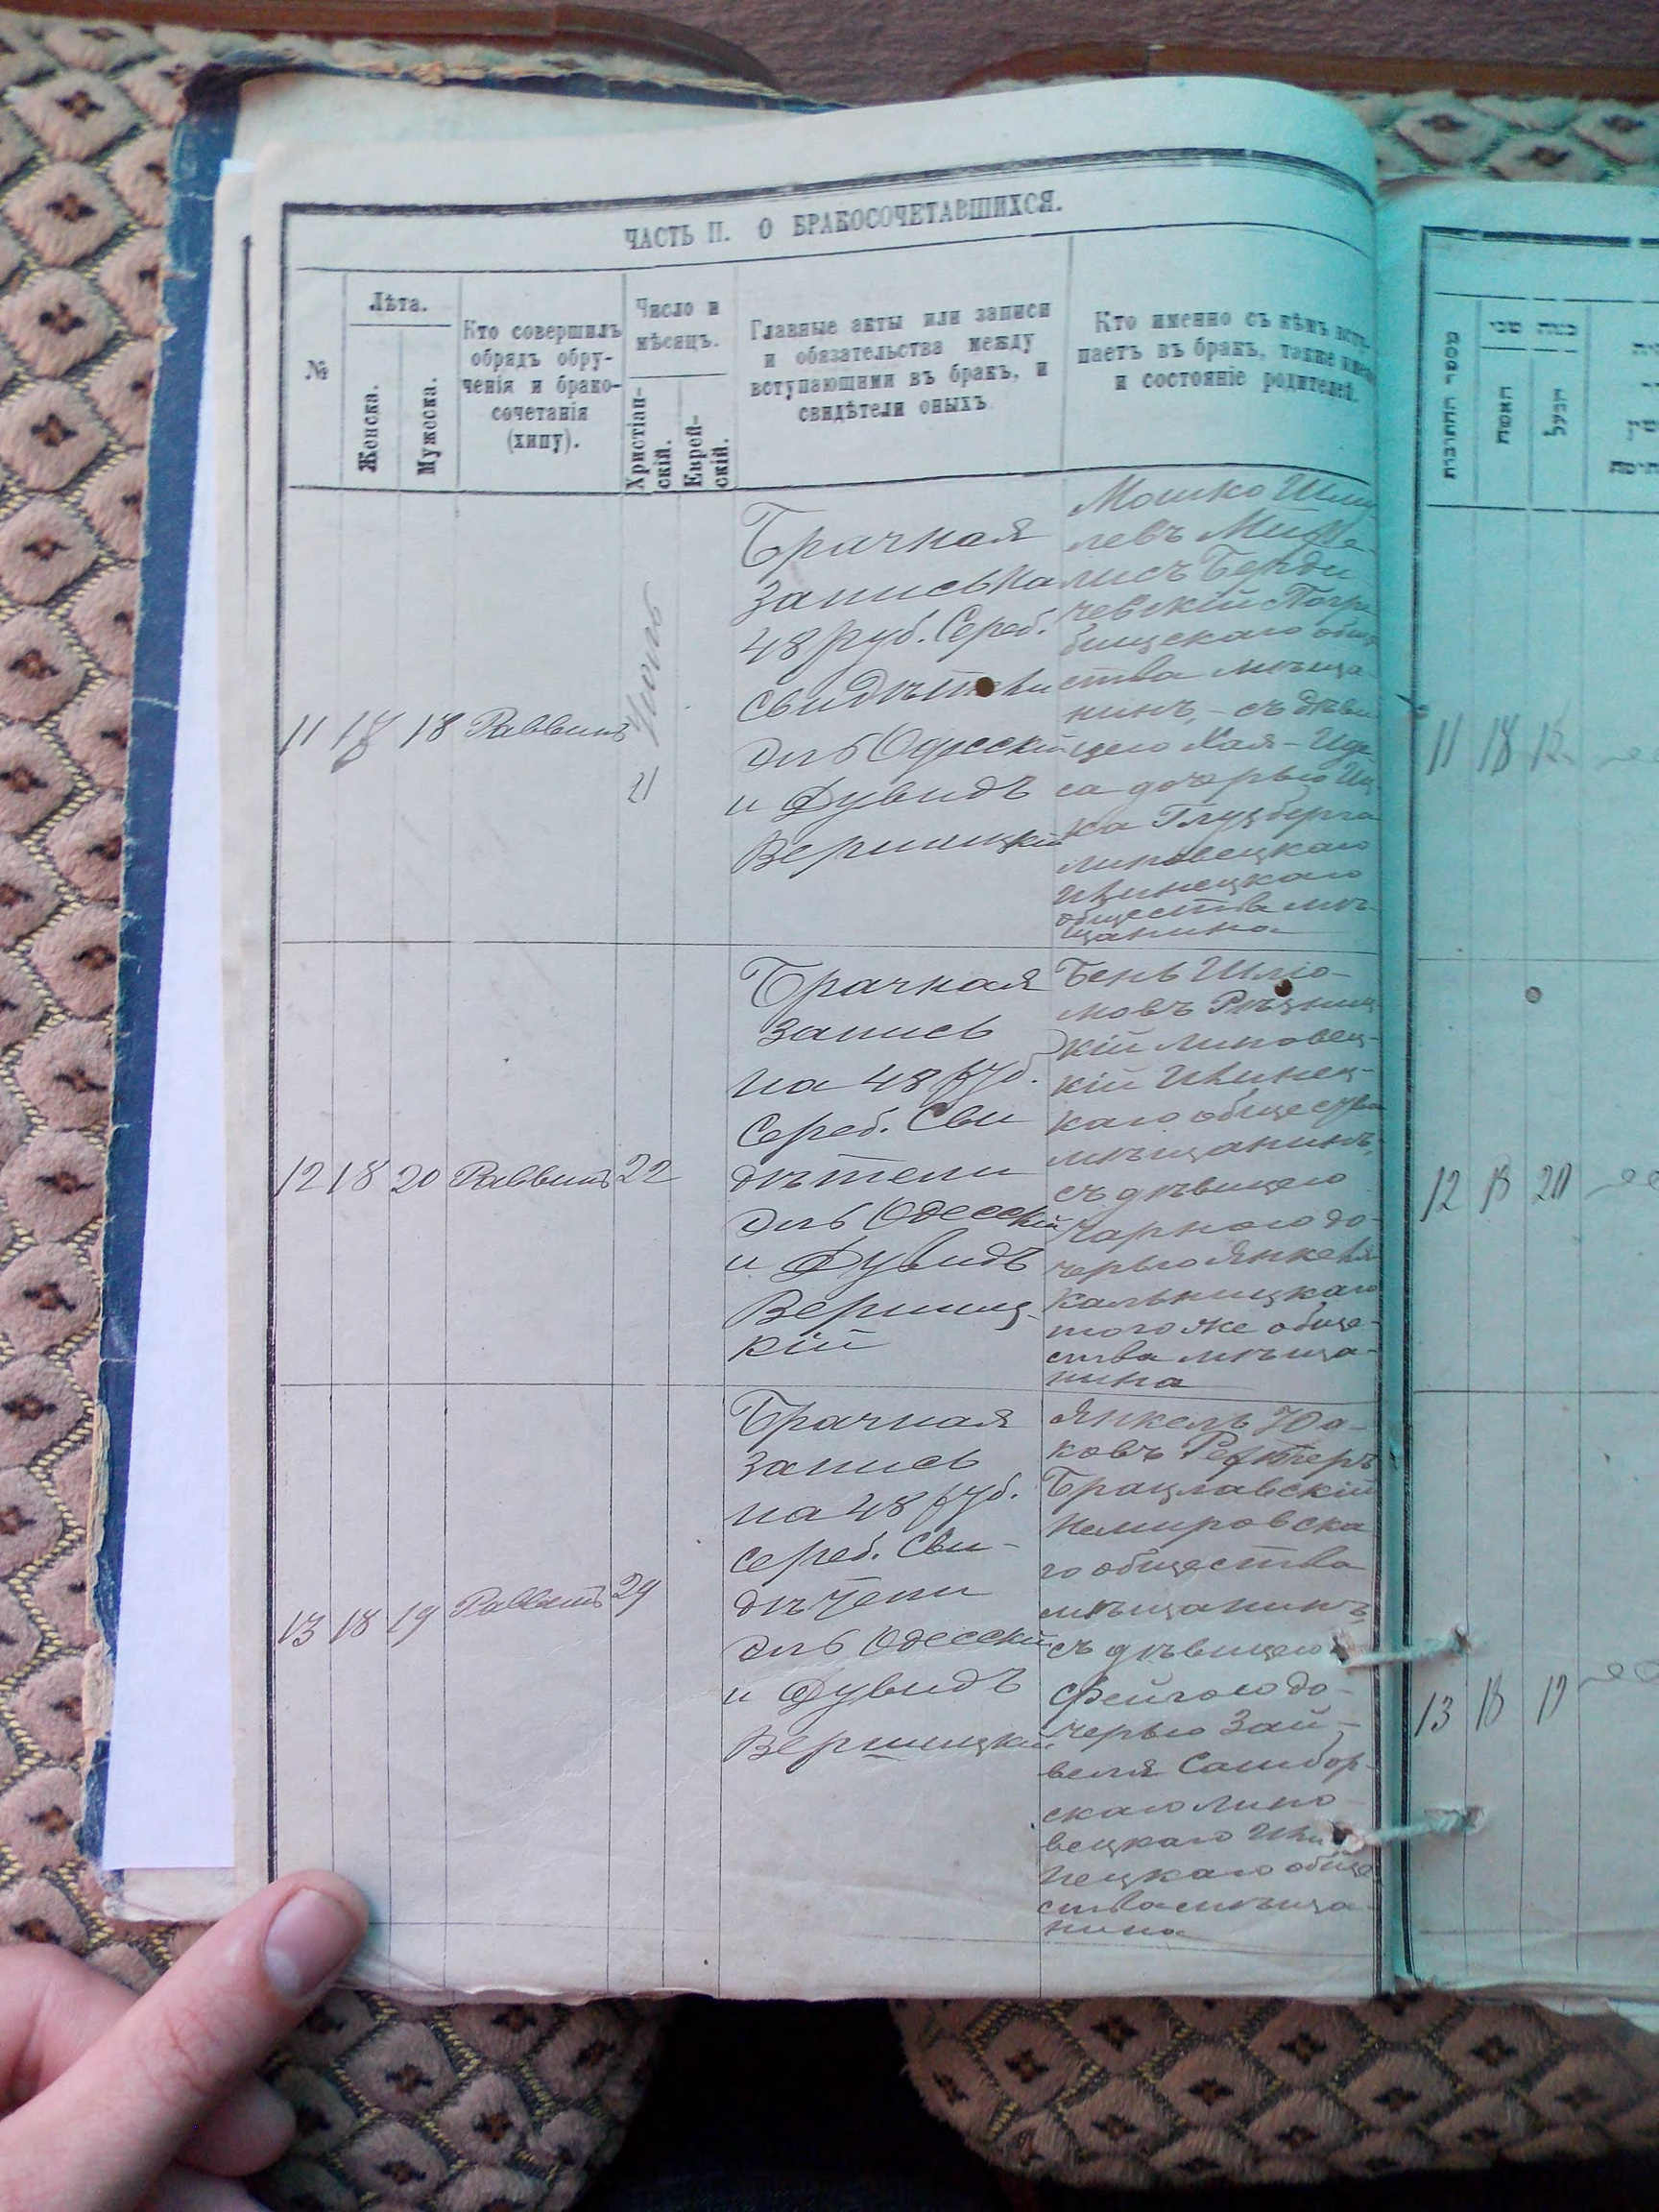 ЧАСТЬ II. О БРАКОСОЧЕТАВШИХСЯ.
№
Лѣта.
Женска.
Мужеска.
Кто совершилъ
обрядъ обру-
ченія и брако-
сочетанія
(хипу).
Число и
мѣсяцъ.
Христіан-
скій.
Еврей-
скій.
Главные акты или записи
и обязательства между
вступающими въ бракъ, и
свидѣтели оныхъ
Кто именно съ кѣмъ всту-
паетъ въ бракъ, также имена
и состояніе родителей.
11 18 18 Раввинъ
21
Брачная
запись на
48 руб. Сереб.
свидѣтели
Эль Одесскій
и Дувидъ
Вершицкій
Мошко
левъ
лисъ Берди
чевскій Погре
бищскаго обще
ства мѣща
нинъ, – съ дѣви
цею Хая-
са дочерью Иц
ка Глузберга
липовецкаго
Ильинецкаго
общества мѣ-
щанина
12 18 20 Раввинъ 22
Брачная
запись
на 48 руб.
Сереб. Сви
дѣтели
Эль Одесскій
и Дувидъ
Вершиц-
кій
Бень Шліо-
мовъ
кій липовец-
кій Илинец-
каго общества
мѣщанинъ,
съ дѣвицею
Чарною до-
черью Янкеля
Кальницкаго
того же обще-
ства мѣща-
нина
13 18 19 Раввинъ 29
Брачная
запись
на 48 руб.
сереб. Сви-
дѣтели
Эль Одесскій
и Дувидъ
Вершицкій
Янкель
ковъ
Брацлавскій
Немировска
го общества
мѣщанинъ,
съ дѣвицею
Фейгою до-
черью Зай-
веля Самбор-
скаго липо-
вецкаго Или
нецкаго обще
ства мѣща-
нина
11 18 18
12 18 20
13 18 19